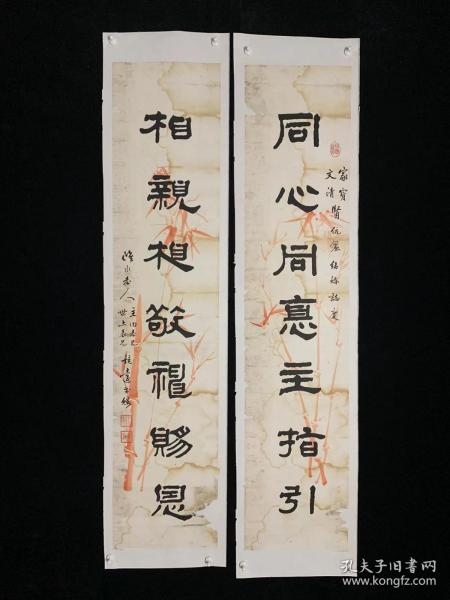 同心同意主指引
家寶
文清
賢伉儷結婚誌慶
相親相敬神賜恩
孔夫子旧书网
www.kongfz.com